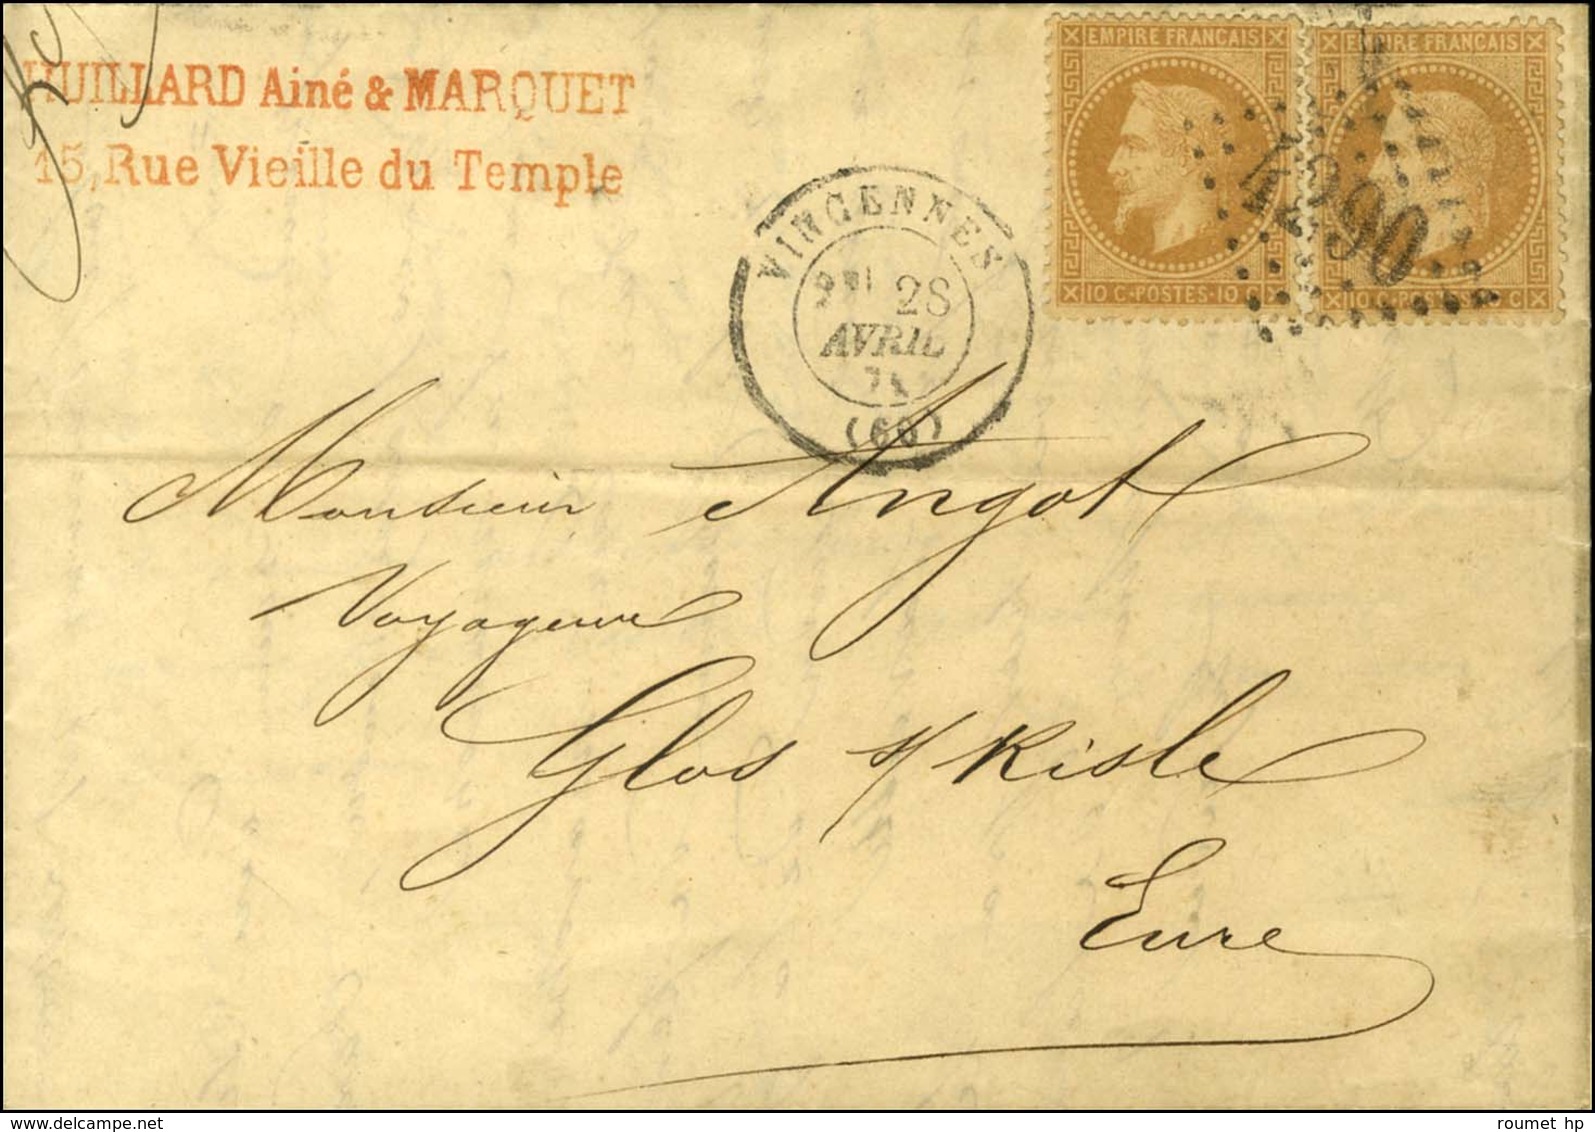 HUILLARD Ainé & MARQUET
15, Rue Vieille du Temple
EMPIRE FRANÇAIS
10 C · POSTES · 10 C
EMPIRE FRANÇAIS
10 C · POSTES · 10 C
4290
VINCENNES
28
AVRIL
71
(60)
Monsieur Angot
Voyageur
Glos s/ Risle
Eure
roumet hp